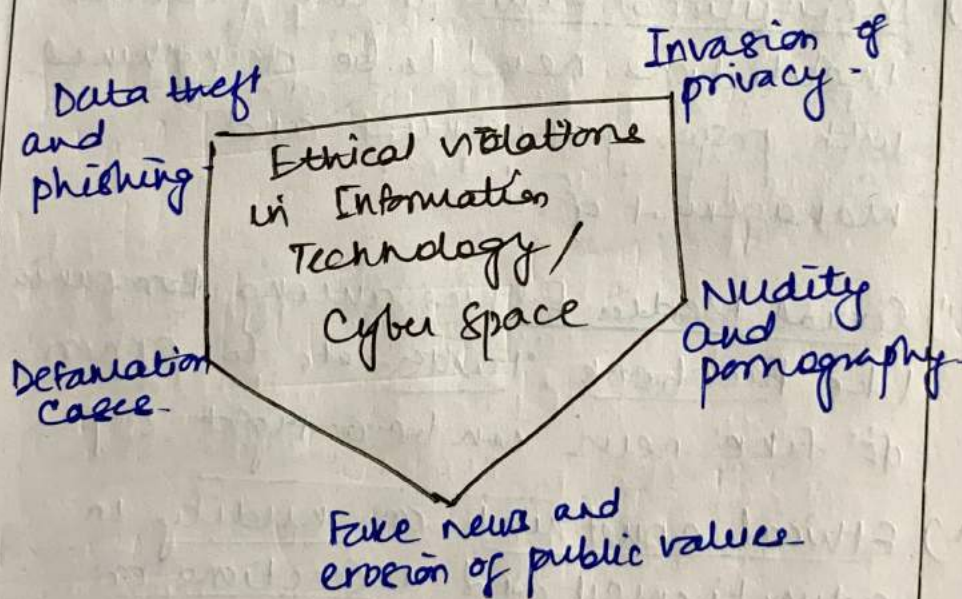 Data theft
and
phishing
Invasion of
privacy.
Ethical violations
in Information
Technology/
Cyber Space
Nudity
and
pornography
Defamation
Cases.
Fake news and
erosion of public values